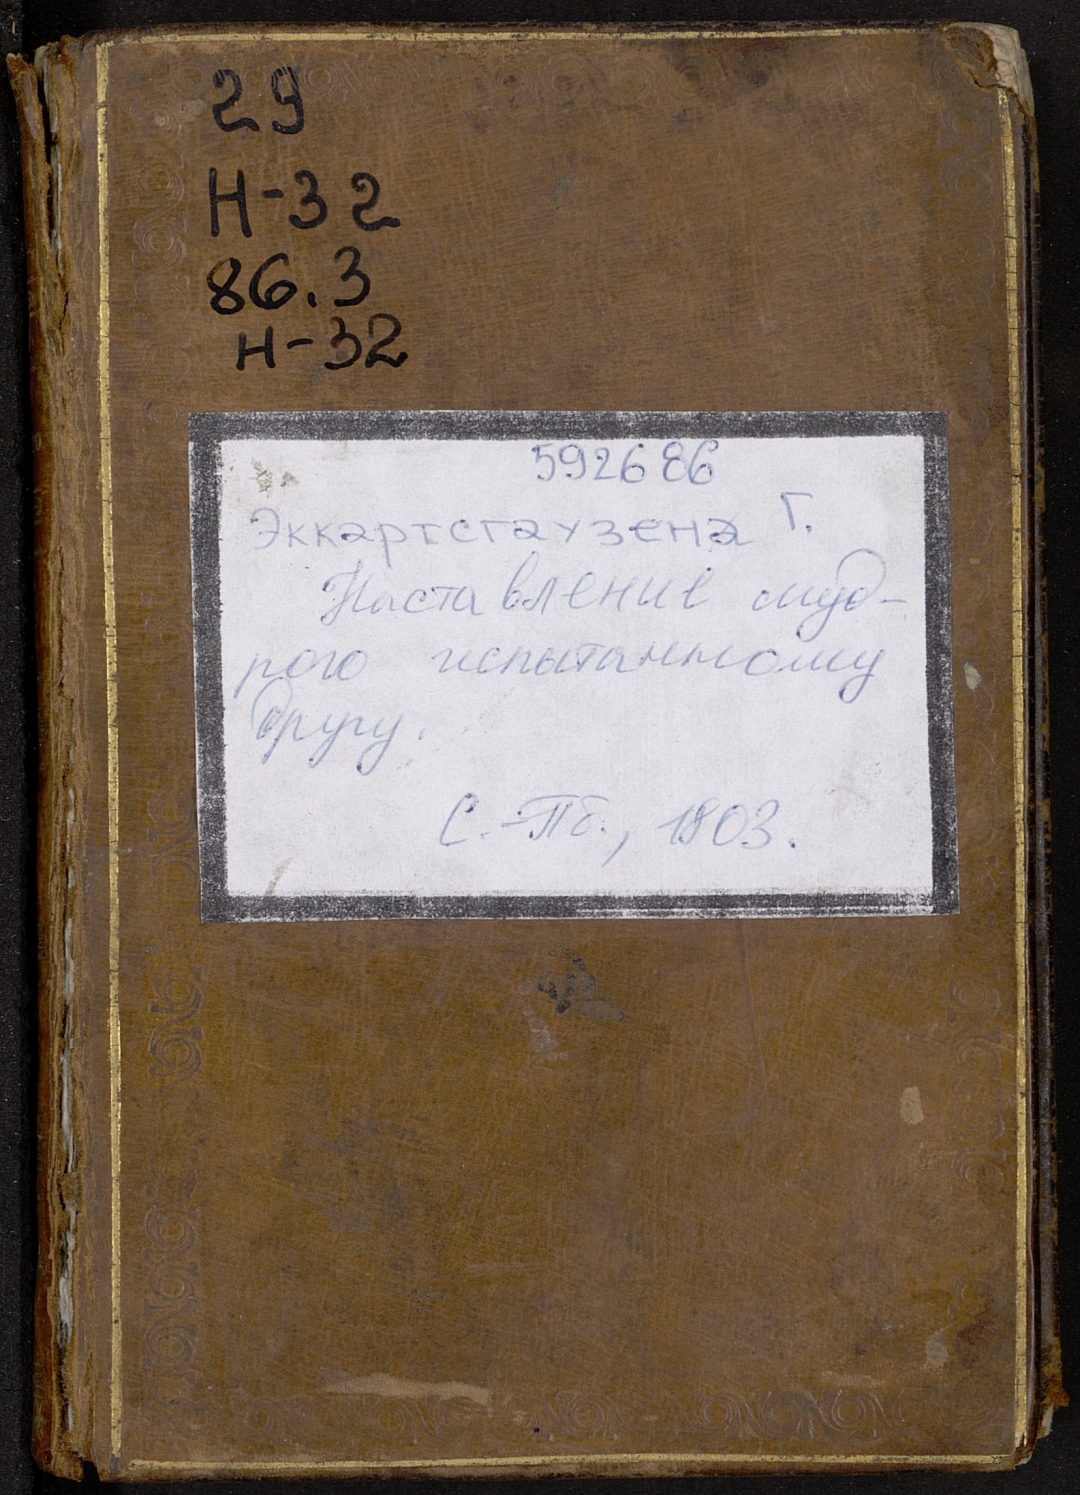 29
Н-32
86.3
Н-32
592686
Эккартсгаузена Г.
Наставление муд-
рого испытанному
другу.
С.-Пб., 1803.